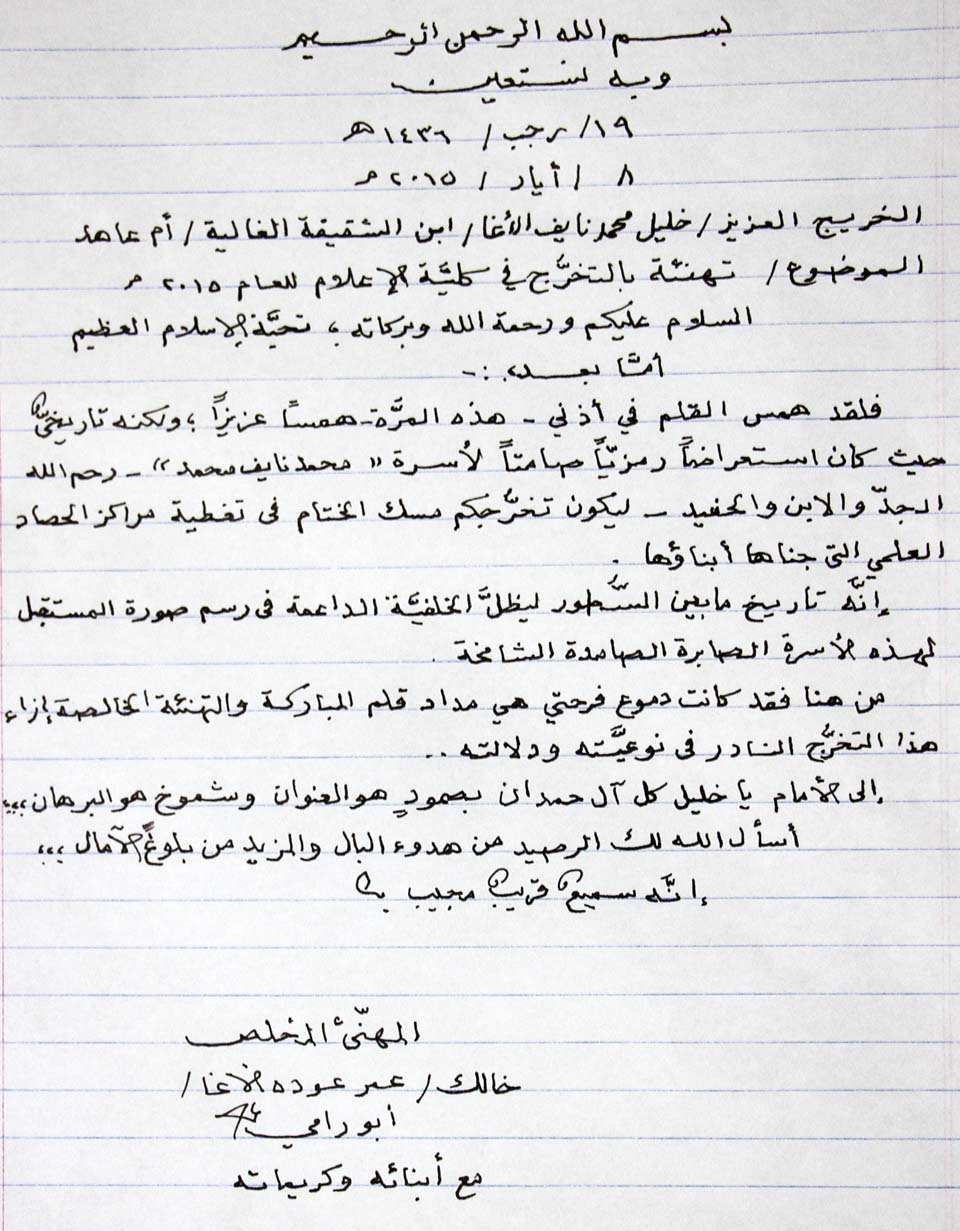 بسم الله الرحمن الرحيم
وبه نستعين
١٩/ رجب / ١٤٣٦ هـ
٨ / أيار / ٢٠١٥ م
الخريج العزيز / خليل محمد نايف الأغا / ابن الشقيقة الغالية / أم عاهد
الموضوع / تهنئة بالتخرُّج في كليَّة الإعلام للعام ٢٠١٥ م
السلام عليكم ورحمة الله وبركاته ، تحيَّة الإسلام العظيم
أمَّا بعد، :-
فلقد همس القلم في أذني - هذه المرَّة - همساً عزيزاً ، ولكنه تاريخيٌّ
حيث كان استعراضاً رمزيّاً صامتاً لأسرة " محمد نايف محمد " - رحم الله
الجدّ والابن والحفيد - ليكون تخرُّجكم مسك الختام فى تغطية مراكز الحصاد
العلمي التى جناها أبناؤها .
إنَّه تاريخ مابين السُّطور ليظلَّ الخلفيَّة الداعمة فى رسم صورة المستقبل
لهذه الأسرة الصابرة الصامدة الشامخة .
من هنا فقد كانت دموع فرحتي هي مداد قلم المباركة والتهنئة الخالصة إزاء
هذا التخرُّج النادر فى نوعيَّته ودلالته ..
إلى الأمام يا خليل كل آل حمدان بصمودٍ هو العنوان وشموخ هو البرهان ،،،
أسأل الله لك الرصيد من هدوء البال والمزيد من بلوغ الآمال ،،،
إنَّه سميعٌ قريبٌ مجيب
المهنّئ المخلص
خالك / عمر عوده الأغا /
أبو رامي
مع أبنائه وكريماته